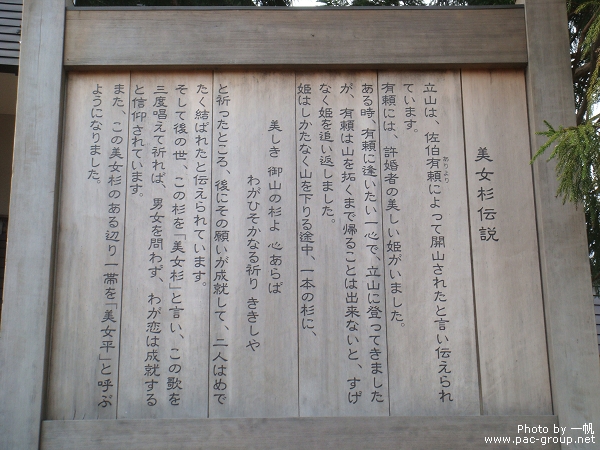 美女杉伝説
立山は、佐伯有頼によって開山されたと言い伝えられ
ありより
ています。
有頼には、許婚者の美しい姫がいました。
ある時、有頼に逢いたい一心で、立山に登ってきました
が、有頼は山を拓くまで帰ることは出来ないと、すげ
なく姫を追い返しました。
姫はしかたなく山を下りる途中、一本の杉に、
美しき 御山の杉よ 心あらば
わがひそかなる祈り ききしや
と祈ったところ、後にその願いが成就して、二人はめで
たく結ばれたと伝えられています。
そして後の世、この杉を「美女杉」と言い、この歌を
三度唱えて祈れば、男女を問わず、わが恋は成就する
と信仰されています。
また、この美女杉のある辺り一帯を「美女平」と呼ぶ
ようになりました。
Photo by 一帆
www.pac-group.net